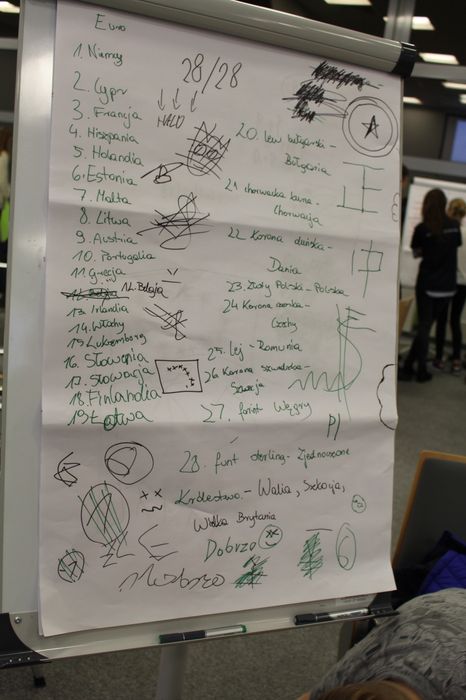 Euro
1. Niemcy
2. Cypr
3. Francja
4. Hiszpania
5. Holandia
6. Estonia
7. Malta
8. Litwa
9. Austria
10. Portugalia
11. Grecja
12. Belgia
13. Irlandia
14. Włochy
15. Luksemburg
16. Słowenia
17. Słowacja
18. Finlandia
19. Łotwa
28/28
20. lew bułgarski -
Bułgaria
21 chorwacka kuna -
Chorwacja
22. Korona duńska -
Dania
23. Złoty Polski - Polska
24 Korona czeska -
Czechy
25. lej - Rumunia
26. Korona szwedzka -
Szwecja
27. forint Węgry
28. funt sterling - Zjednoczone
Królestwo - Walia, Szkocja,
Wielka Brytania
Dobrze